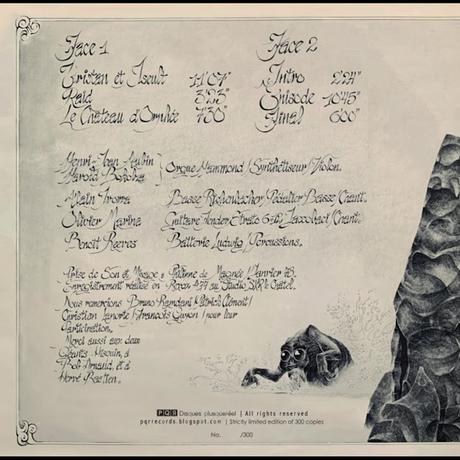 Face 1
Tristan et Iseult 11'07"
Raid 3'23"
Le Château d'Orphée 7'30"
Face 2
Intro 2'24"
Episode 10'45"
Final 6'00"
Henri-Jean Aubin
Harold
Orgue Hammond / Synthétiseur / Violon.
Alain
Basse Rickenbacker / Pédalier Basse / Chant.
Olivier
Guitare Fender Strato / Chant.
Benoît Reeves
Batterie Ludwig / Percussions.
Prise de Son et Mixage : de / Janvier 76.
Enregistrement réalisé sur Revox A77 au Studio
Nous remercions Bruno Ramdani / Patrick Clément /
Christian / François Guyon / pour leur
participation.
Merci aussi aux deux
Géants à
Bob Arnaud, et à
Hervé
PQR Disques plusqueréel | All rights reserved
pqrrecords.blogspot.com | Strictly limited edition of 300 copies
No. /300